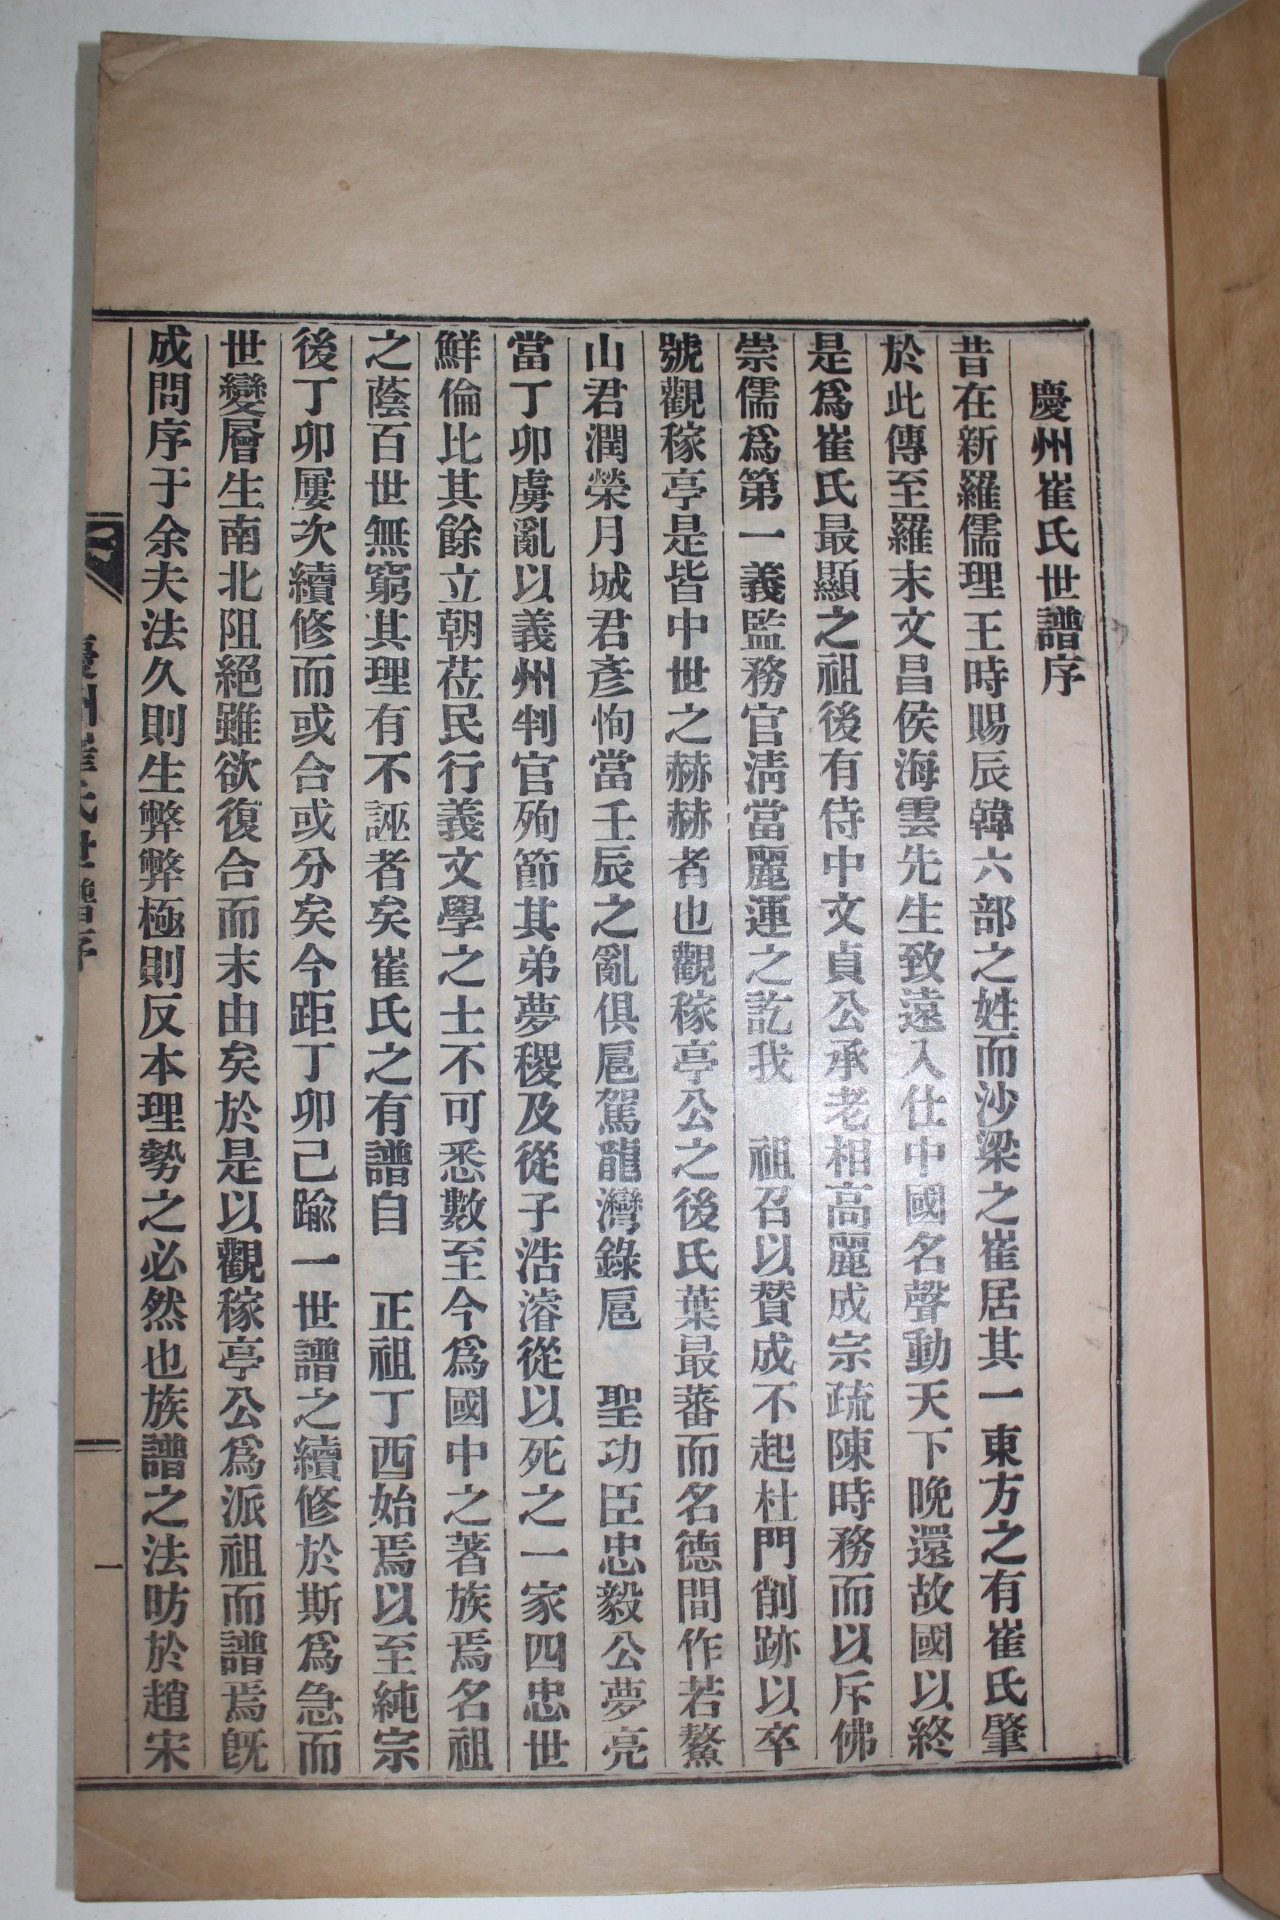 慶州崔氏世譜序
昔在新羅儒理王時賜辰韓六部之姓而沙梁之崔居其一東方之有崔氏肇
於此傳至羅末文昌侯海雲先生致遠入仕中國名聲動天下晩還故國以終
是爲崔氏最顯之祖後有侍中文貞公承老相高麗成宗疏陳時務而以斥佛
崇儒爲第一義監務官淸當麗運之訖我 祖召以贊成不起杜門削跡以卒
號觀稼亭是皆中世之赫赫者也觀稼亭公之後氏葉最蕃而名德間作若鰲
山君潤榮月城君彥恂當壬辰之亂俱扈駕龍灣錄扈 聖功臣忠毅公夢亮
當丁卯虜亂以義州判官殉節其弟夢稷及從子浩濬從以死之一家四忠世
鮮倫比其餘立朝莅民行義文學之士不可悉數至今爲國中之著族焉名祖
之蔭百世無窮其理有不誣者矣崔氏之有譜自 正祖丁酉始焉以至純宗
後丁卯屢次續修而或合或分矣今距丁卯己踰一世譜之續修於斯爲急而
世變層生南北阻絕雖欲復合而末由矣於是以觀稼亭公爲派祖而譜焉旣
成問序于余夫法久則生弊弊極則反本理勢之必然也族譜之法昉於趙宋
慶州崔氏世譜序
一